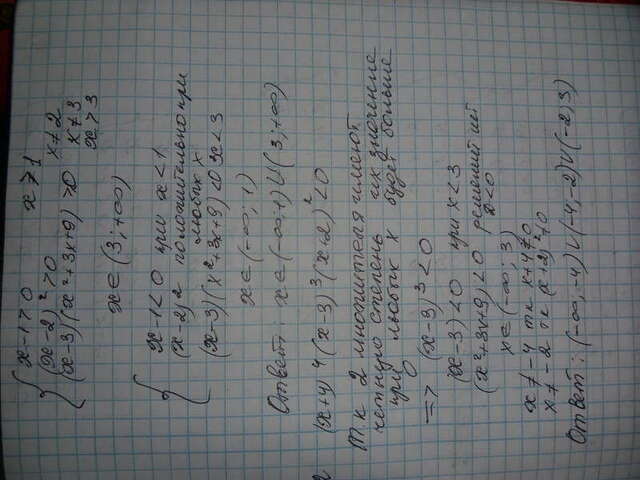 x-1>0 x>1
(x-2)²>0 x≠2
(x-3)(x²+3x+9)>0 x≠3
x>3
x∈(3;+∞)
x-1<0 при x<1
(x-2)² положительно при
любых x
(x-3)(x²+3x+9)<0 x<3
x∈(-∞;1)
Ответ: x∈(-∞;1)∪(3;+∞)
(x+4)⁴(x-3)³(x+2)²<0
Т.к 2 множителя имеют
четную степень их значение
при любых x будет больше
0
=> (x-3)³<0
(x-3)<0 при x<3
(x²+3x+9)<0 решений нет
x<0
x∈(-∞;3)
x≠-4 тк x+4≠0
x≠-2 тк (x+2)²≠0
Ответ: (-∞,-4)∪(-4,-2)∪(-2,3)